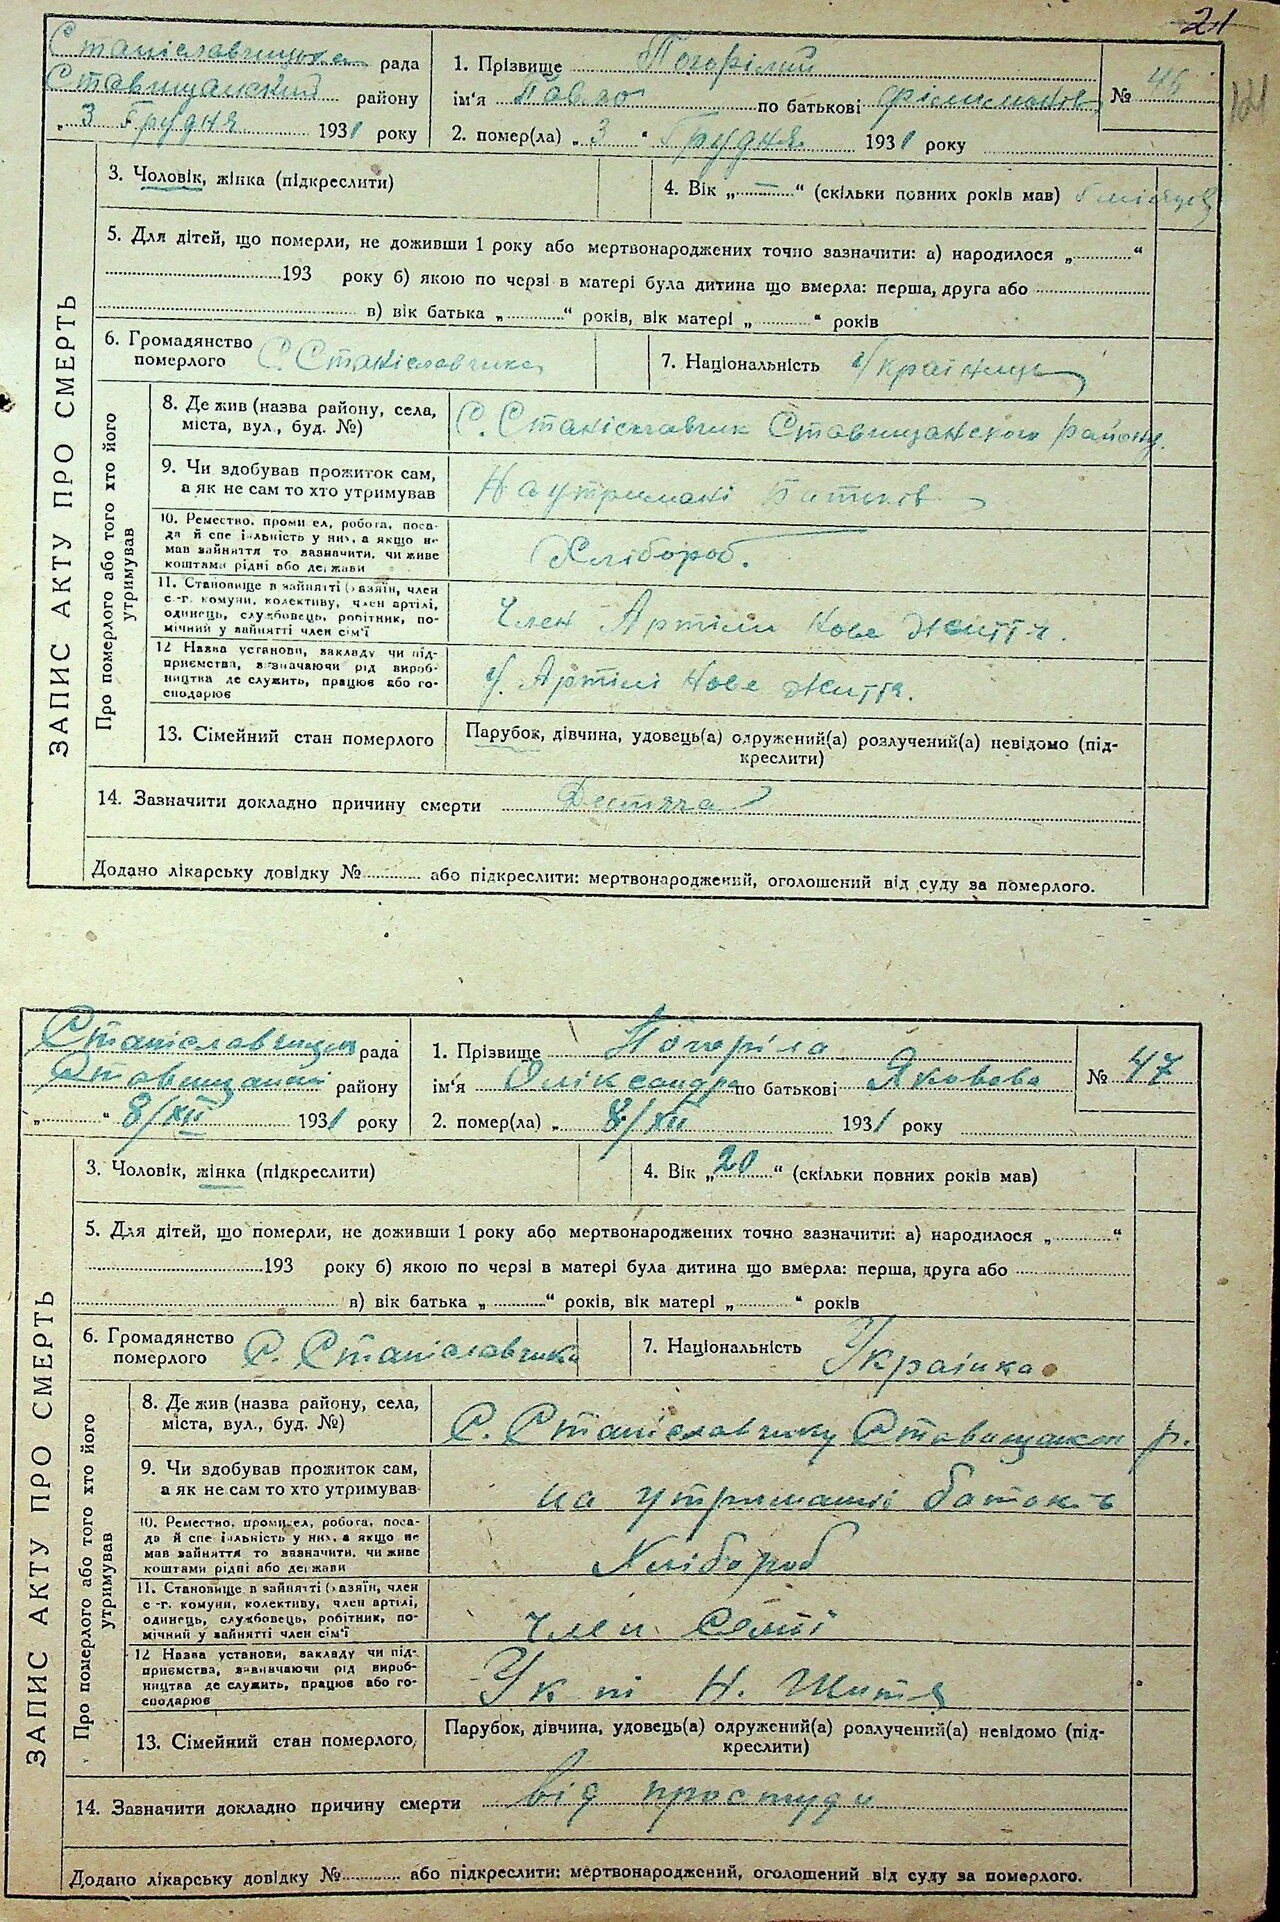 21
Станіславчицька рада
Ставищанский району
„ 3 Грудня 1931 року
1. Прізвище Погорілий
ім‘я Павло по батькові Філимонов.
№ 46
2. помер(ла) „ 3 “ Грудня 1931 року
3. Чоловік, жінка (підкреслити)
4. Вік „ — “ (скільки повних років мав) місяців
5. Для дітей, що померли, не доживши 1 року або мертвонароджених точно зазначити: а) народилося „ “
193 року б) якою по черзі в матері була дитина що вмерла: перша, друга або
в) вік батька „ “ років, вік матері „ “ років
6. Громадянство померлого С. Станіславчика
7. Національність Українець
ЗАПИС АКТУ ПРО СМЕРТЬ
Про померлого або того хто його утримував
8. Де жив (назва району, села,
міста, вул., буд. №)
С. Станіславчик Ставищанского району.
9. Чи здобував прожиток сам,
а як не сам то хто утримував
На утримані Батьків
10. Ремество, проми ел, робота, поса-
да й спе іальність у них, а якщо не
мав зайняття то зазначити, чи живе
коштами рідні або держави
Хлібороб.
11. Становище в зайнятті (хазяїн, член
с.-г. комуни, колективу, член артілі,
одинець, службовець, робітник, по-
мічний у зайнятті член сім‘ї
Член Артіли Нове Життя.
12 Назва установи, закладу чи під-
приємства, зазначаючи рід вироб-
ництва де служить, працює або го-
сподарює
У. Артілі Нове Життя.
13. Сімейний стан померлого
Парубок, дівчина, удовець(а) одружений(а) розлучений(а) невідомо (під-
креслити)
14. Зазначити докладно причину смерти
Додано лікарську довідку № або підкреслити: мертвонароджений, оголошений від суду за померлого.
Станіславчицька рада
Ставищанскі району
„ “ 8/XII 1931 року
1. Прізвище Погоріла
ім‘я Оліксандра по батькові Яковова
№ 47
2. помер(ла) „ 8/XII 1931 року
3. Чоловік, жінка (підкреслити)
4. Вік „ 20 “ (скільки повних років мав)
5. Для дітей, що померли, не доживши 1 року або мертвонароджених точно зазначити: а) народилося „ “
193 року б) якою по черзі в матері була дитина що вмерла: перша, друга або
в) вік батька „ “ років, вік матері „ “ років
6. Громадянство померлого С. Станіславчика
7. Національність Українка
ЗАПИС АКТУ ПРО СМЕРТЬ
Про померлого або того хто його утримував
8. Де жив (назва району, села,
міста, вул., буд. №)
С. Станіславчику Ставищанскои р.
9. Чи здобував прожиток сам,
а як не сам то хто утримував
на утриманні батьків
10. Ремество, промисел, робота, поса-
да й спе іальність у них, а якщо не
мав зайняття то зазначити, чи живе
коштами рідні або держави
Хлібороб
11. Становище в зайнятті (хазяїн, член
с.-г. комуни, колективу, член артілі,
одинець, службовець, робітник, по-
мічний у зайнятті член сім‘ї
член Семі
12 Назва установи, закладу чи під-
приємства, зазначаючи рід вироб-
ництва де служить, працює або го-
сподарює
Н. Життя
13. Сімейний стан померлого,
Парубок, дівчина, удовець(а) одружений(а) розлучений(а) невідомо (під-
креслити)
14. Зазначити докладно причину смерти від простуди
Додано лікарську довідку № або підкреслити: мертвонароджений, оголошений від суду за померлого.